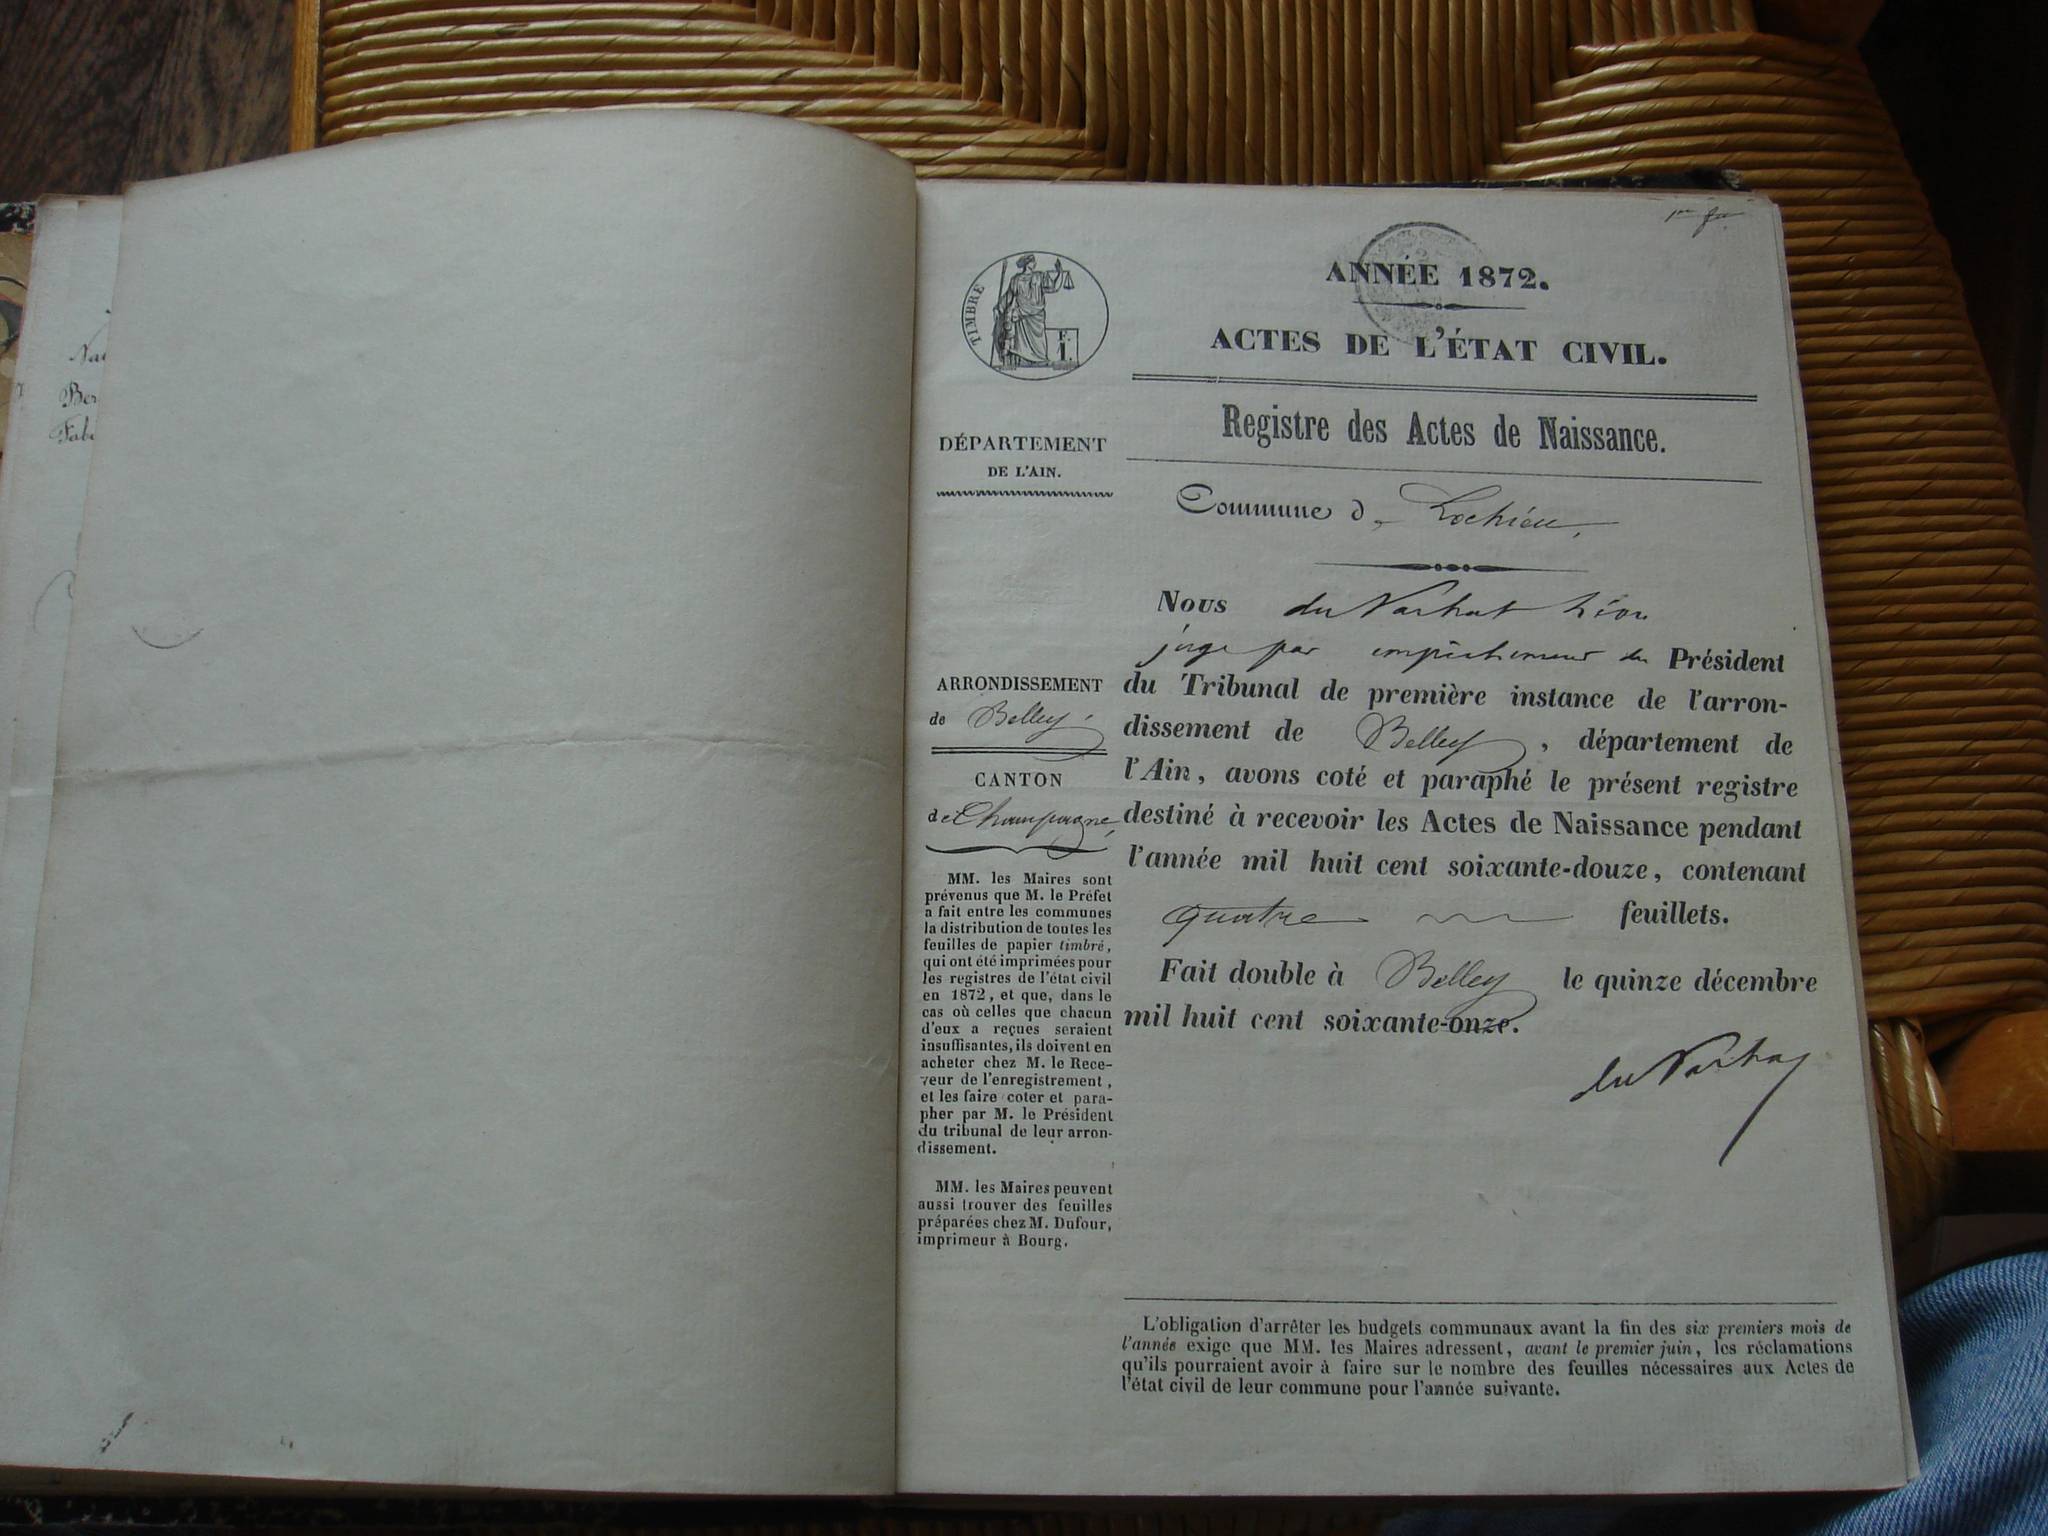 1er f.
ANNÉE 1872.
ACTES DE L'ÉTAT CIVIL.
Registre des Actes de Naissance.
Commune de Lochieu,
Nous du Varhat Léon
juge par empêchement du Président
du Tribunal de première instance de l'arron-
dissement de Belley, département de
l'Ain, avons coté et paraphé le présent registre
destiné à recevoir les Actes de Naissance pendant
l'année mil huit cent soixante-douze, contenant
quatre feuillets.
Fait double à Belley le quinze décembre
mil huit cent soixante-onze.
TIMBRE
DÉPARTEMENT
DE L'AIN.
ARRONDISSEMENT
de Belley.
CANTON
de Champagne,
MM. les Maires sont
prévenus que M. le Préfet
a fait entre les communes
la distribution de toutes les
feuilles de papier timbré,
qui ont été imprimées pour
les registres de l'état civil
en 1872, et que, dans le
cas où celles que chacun
d'eux a reçues seraient
insuffisantes, ils doivent en
acheter chez M. le Rece-
veur de l'enregistrement,
et les faire coter et para-
pher par M. le Président
du tribunal de leur arron-
dissement.
MM. les Maires peuvent
aussi trouver des feuilles
préparées chez M. Dufour,
imprimeur à Bourg.
L'obligation d'arrêter les budgets communaux avant la fin des six premiers mois de
l'année exige que MM. les Maires adressent, avant le premier juin, les réclamations
qu'ils pourraient avoir à faire sur le nombre des feuilles nécessaires aux Actes de
l'état civil de leur commune pour l'année suivante.